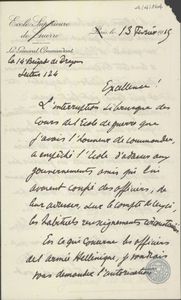 École Supérieure
de Guerre
Le Général Commandant
la 14 Brigade de Dragons
Secteur 124
13 Février 1915
Excellence!
L'interruption brusque des
cours de l'École de guerre que
j'avais l'honneur de commander,
a empêché l'École d'adresser aux
gouvernements amis qui lui
avaient confié des officiers, de
leur adresser, sur le compte de ceux-ci
les habituels renseignements
En ce qui concerne les officiers
de l'armée Hellénique, je voudrais
vous demander l'autorisation